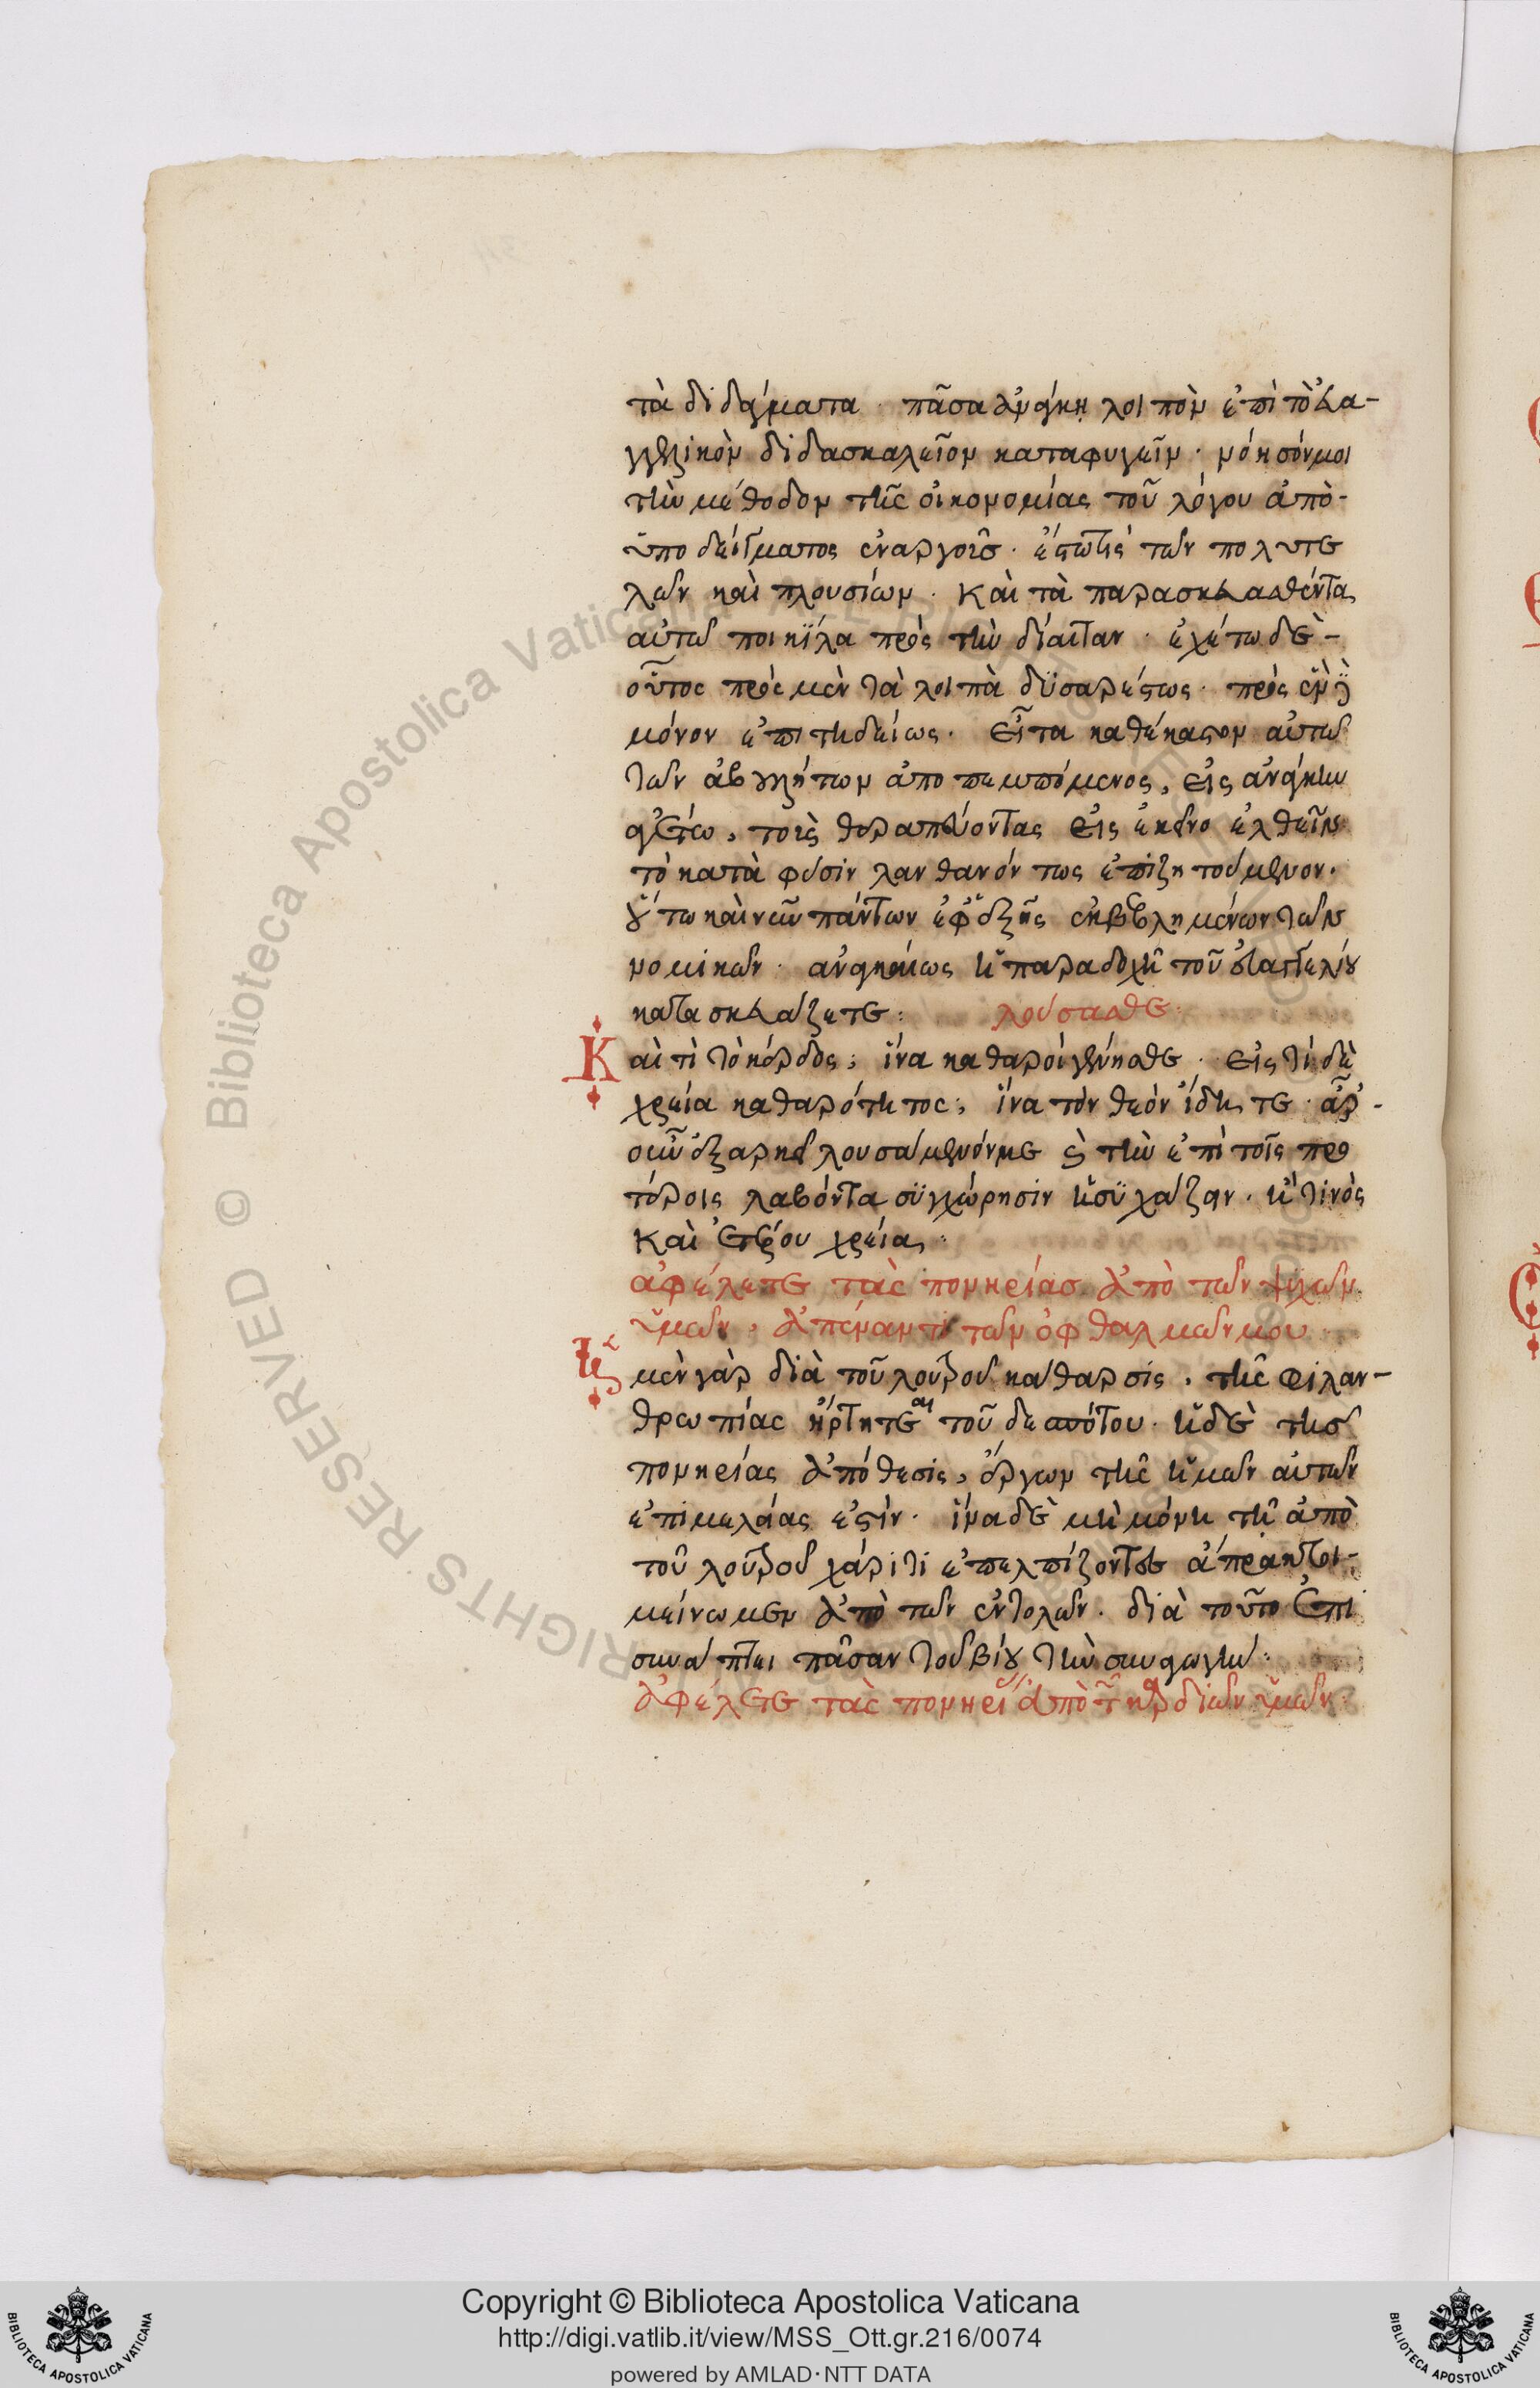 τὰ διδάγματα · πᾶσα ἀνάγκη λοιπὸν ἐπὶ τὸ εὐα-
γγελικὸν διδασκαλεῖον καταφυγεῖν · νόησόν μοι
τὴν μέθοδον τῆς οἰκονομίας τοῦ λόγου ἀπὸ-
ὑποδείγματος ἐναργοῦς · ἔστω τίς τῶν πολυτε
λῶν καὶ πλουσίων · Καὶ τὰ παρασκευασθέντα
αὐτῶ ποικΐλα πρὸς τὴν δίαιταν · ἐχέτω δὲ-
οὗτος πρὸς μὲν τὰ λοιπὰ δϋσαρέστως · πρὸς ἓν δὲ
μόνον ἐπιτηδείως · εἶτα καθέκαστον αὐτῶ
τῶν ἀβουλήτων ἀποπεμπόμενος, εἰς ἀνάγκην
ἀγέτω, τοὺς θεραπεύοντας εἰς ἐκεῖνο ἐλθεῖν
τὸ κατὰ φύσιν λανθανόντως ἐπιζητούμενον.
οὕτω καὶ νῦν πάντων ἐφεξῆς ἐκβεβλημένων τῶν
νομικῶν · ἀναγκαίως ἡ παραδοχὴ τοῦ εὐαγγελίου
κατασκευάζεται: λούσασθε·
Καὶ τί τὸ κέρδος; ἵνα καθαροὶ γένησθε · εἰς τί δὲ
χρεία καθαρότητος; ἵνα τὸν θεὸν ἴδητε · ἆρ'-
οὖν ἐξαρκεῖ λουσάμενόν με καὶ τὴν ἐπὶ τοῖς προ
τέροις λαβόντα συγχώρησιν ἡσϋχάζειν · ἤ τινὸς
Καὶ ἑτέρου χρεία·
ἀφέλετε τὰς πονηρίας ἀπὸ τῶν ψυχῶν
ὑμῶν, ἀπέναντι τῶν ὀφθαλμῶν μου
Ἡ μὲν γὰρ διὰ τοῦ λουτροῦ κάθαρσις, τῆς φιλαν-
θρωπίας ἤρτηται τοῦ δεσπότου · ἡ δὲ τῆς
πονηρίας ἀπόθεσις, ἔργον τῆς ἡμῶν αὐτῶν
ἐπιμελείας ἐστίν · ἵνα δὲ μὴ μόνη τῆ ἀπὸ
τοῦ λουτροῦ χάριτι ἐπελπίζοντες ἄπρακτοι-
μείνωμεν ἀπὸ τῶν ἐντολῶν · διὰ τοῦτο ἐπι
συνάπτει πᾶσαν τοῦ βίου τὴν συναγωγήν·
ἀφέλετε τὰς πονηρίας ἀπὸ τῶν καρδιῶν ὑμῶν·
Copyright © Biblioteca Apostolica Vaticana
http://digi.vatlib.it/view/MSS_Ott.gr.216/0074
powered by AMLAD·NTT DATA